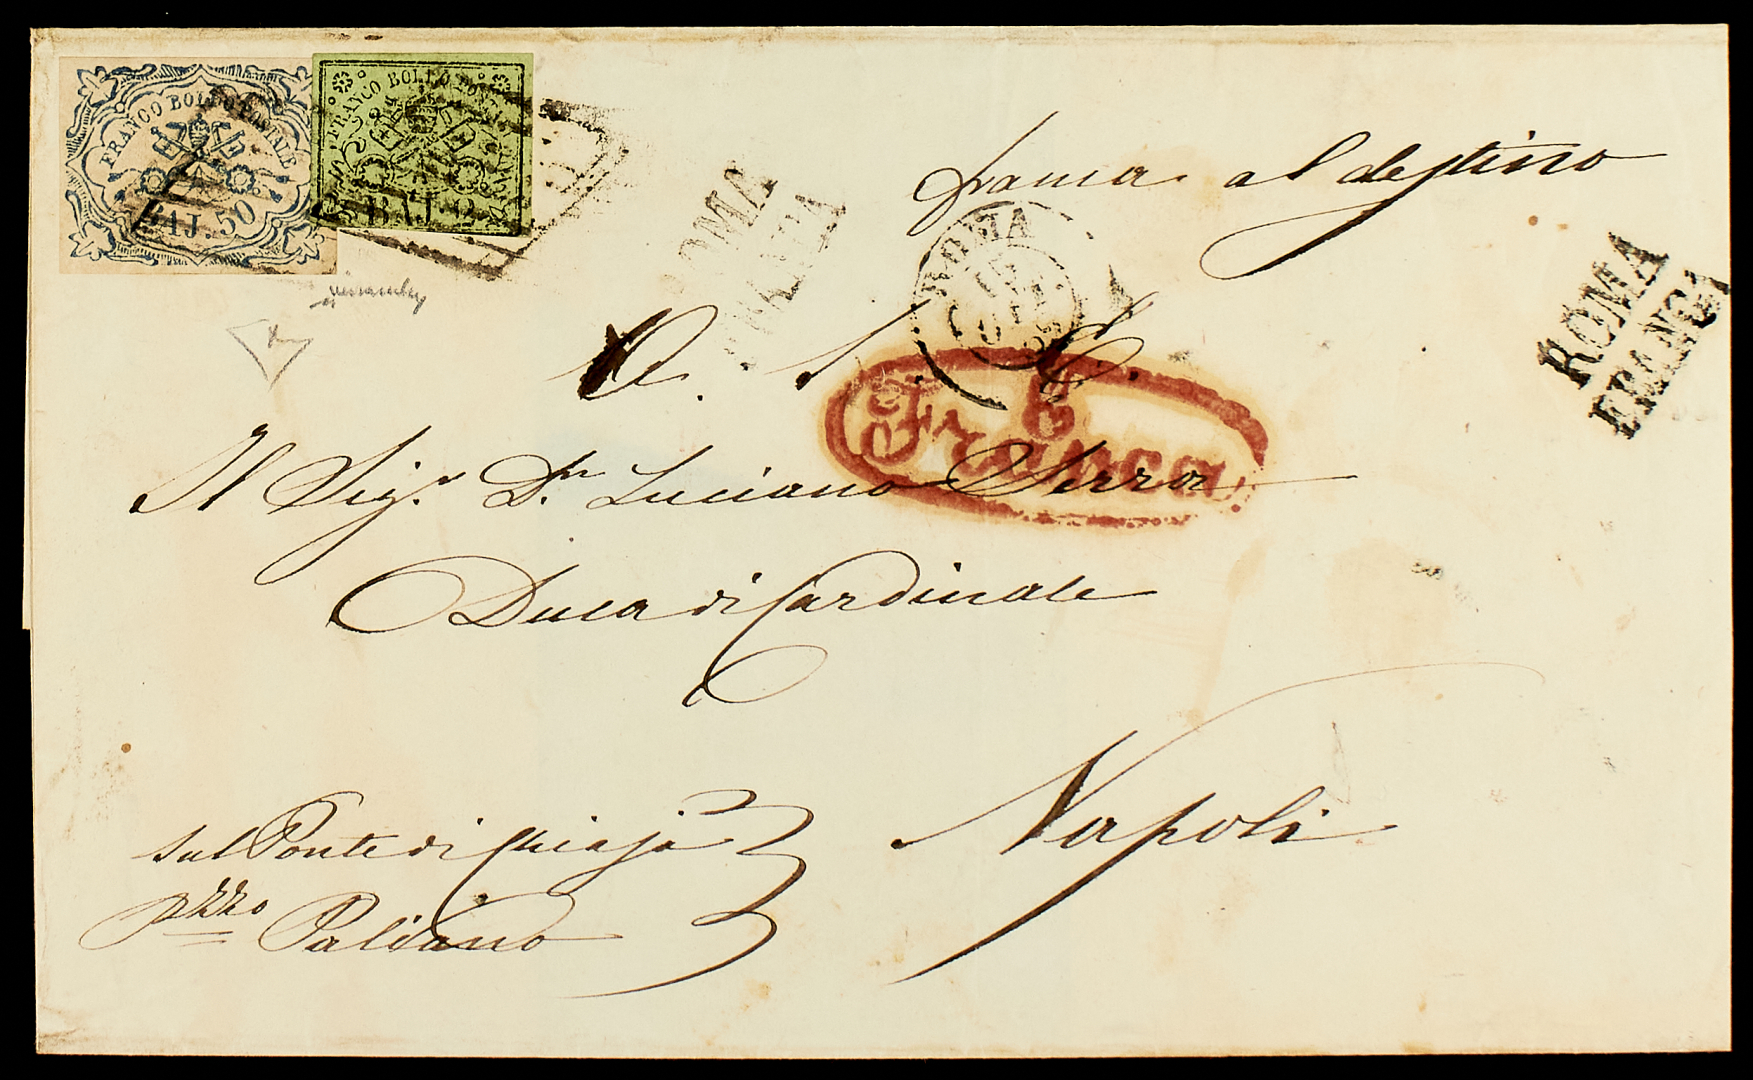 FRANCO BOLLO POSTALE
BAJ. 50
FRANCO BOLLO POSTALE
BAJ. 2
franca al destino
ROMA
FRANCA
ROMA
ROMA
FRANCA
A. S. E.
Franca
Il Sig.r D.n Luciano Serra
Duca di Cardinale
Napoli
sul Ponte di Chiaja
pzzo